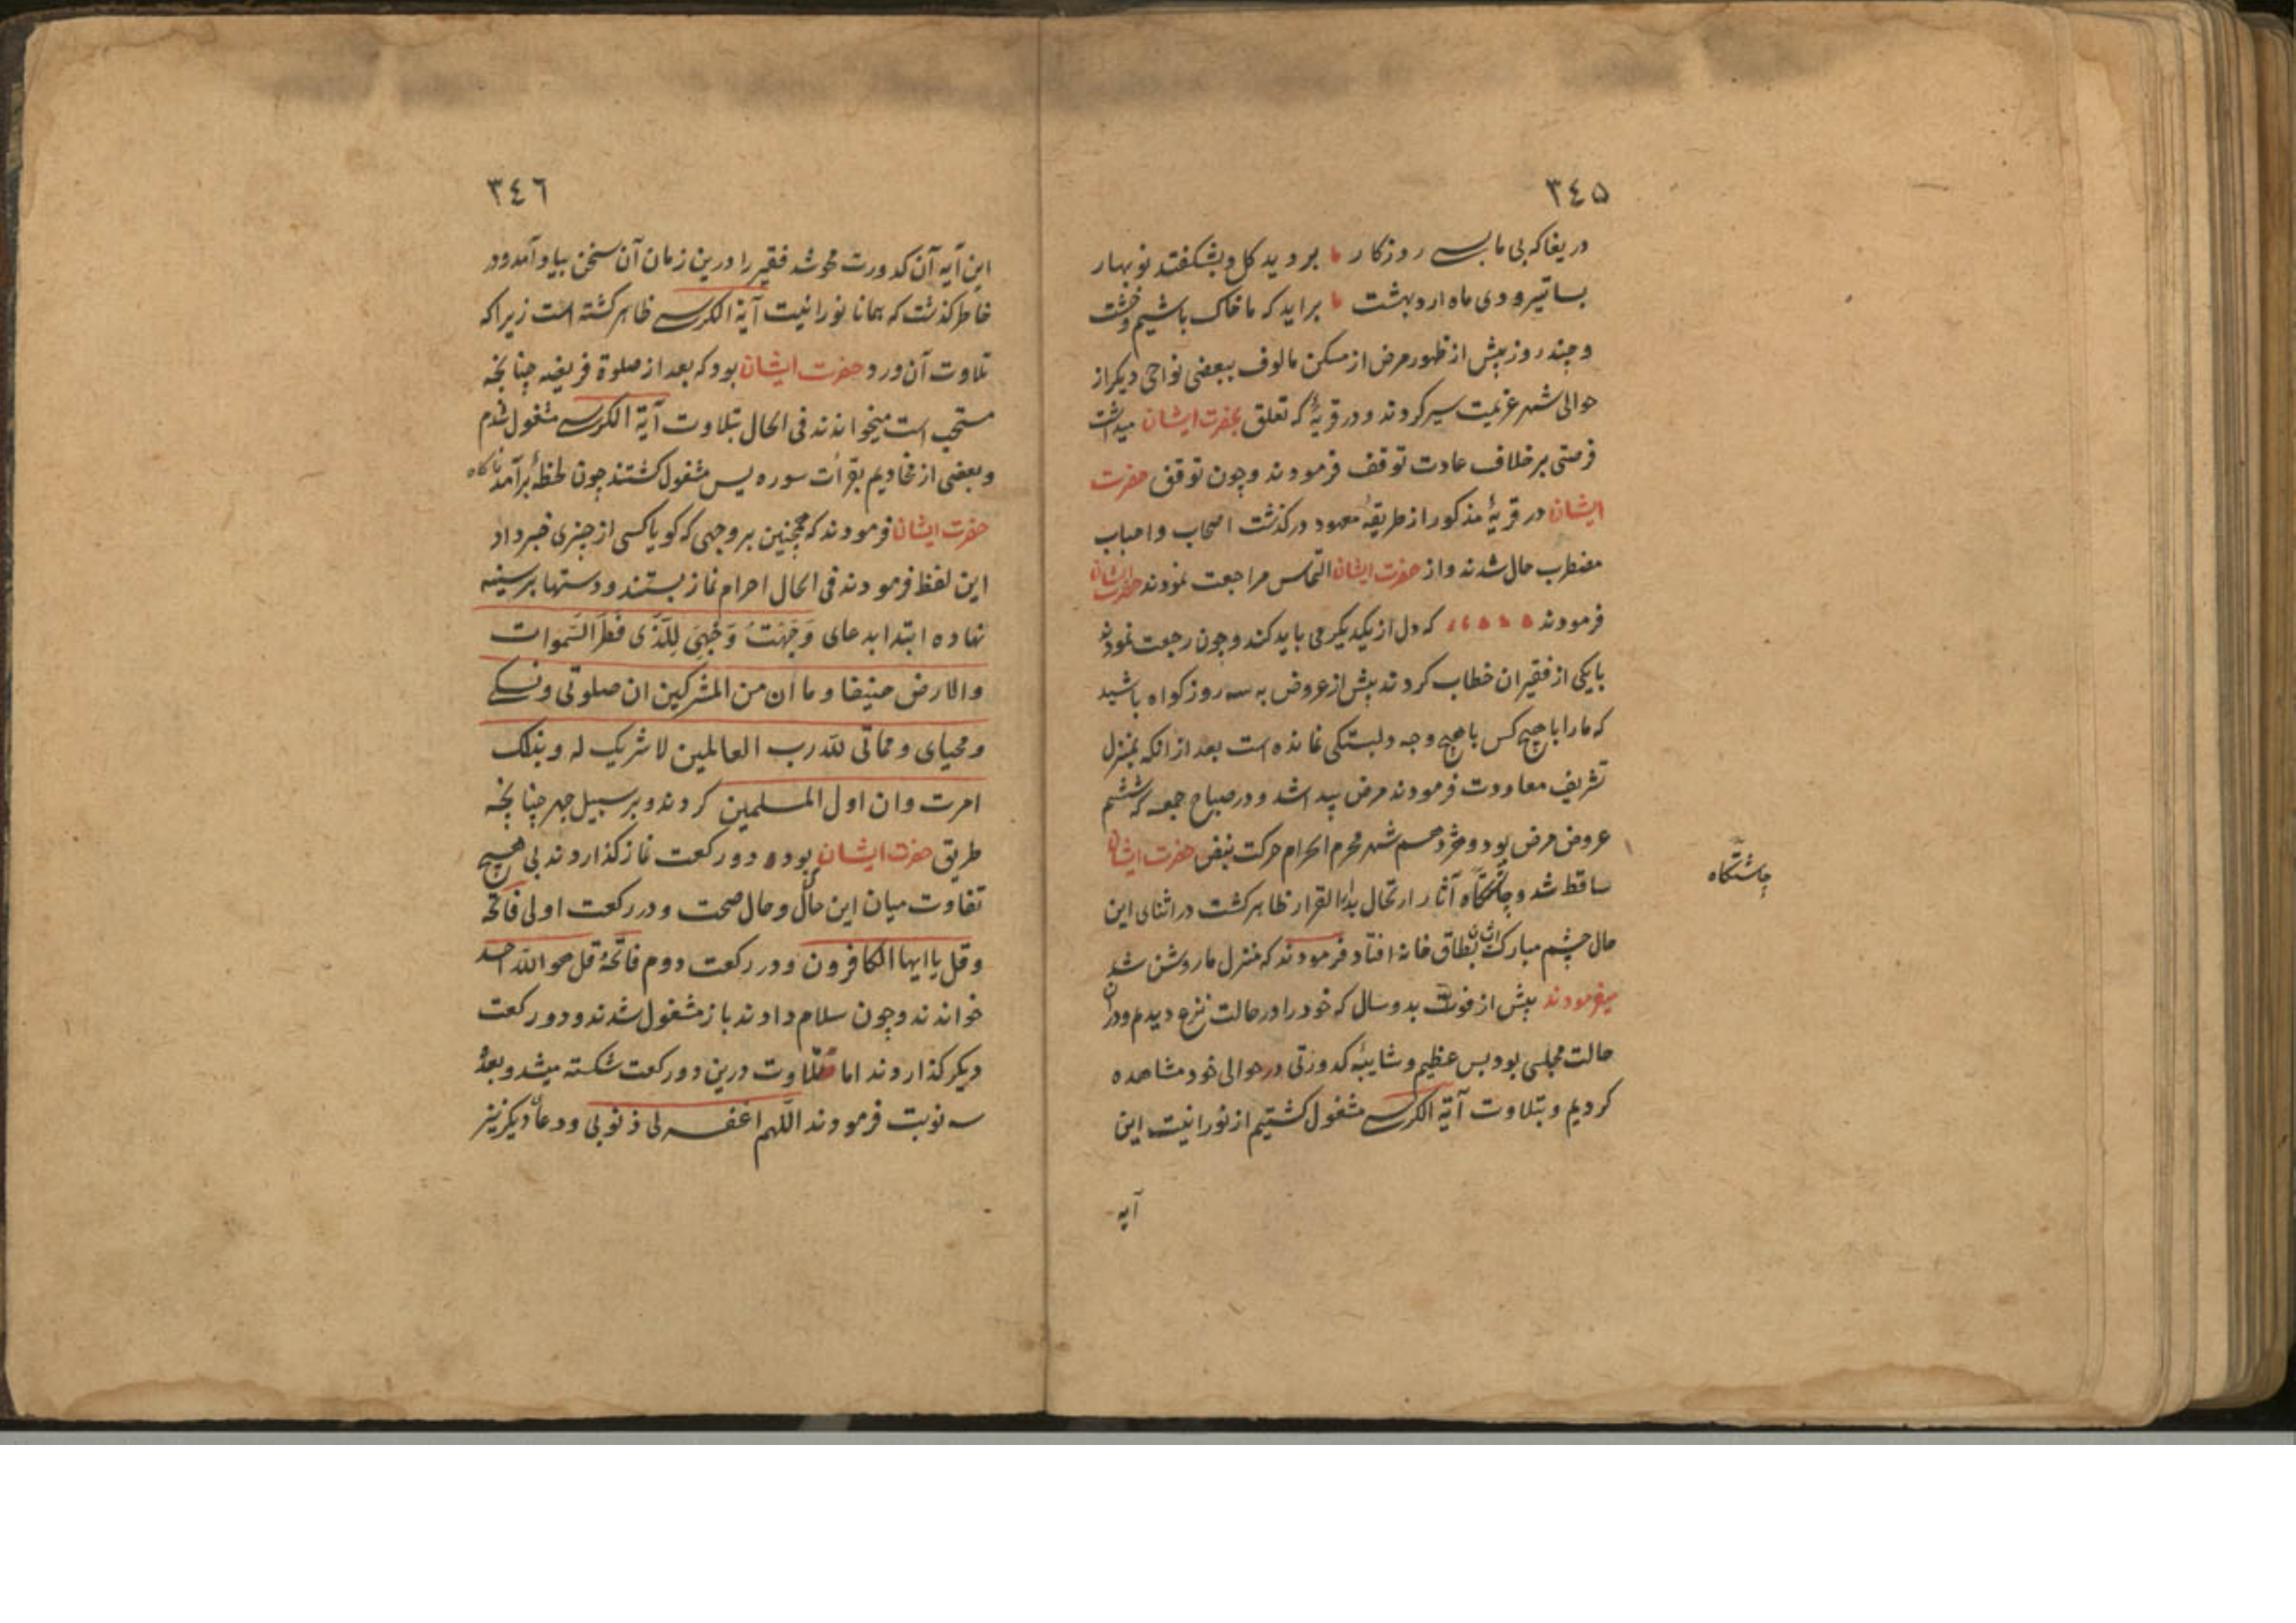 ٣٤٥
دریغا که بی ما بسے روزکار برو ید کل و بشکفتد نوبهار
بسا تیر و دی ماه اردبهشت براید که ما خاک باشیم و خشت
و چند روز پیش از ظهور مرض از مسکن مالوف ببعضی نواحی دیکر از
حوالی شهر عزیمت سیر کردند و در قریۀ که تعلق بحضرت ایشان میداشت
فرصتی بر خلاف عادت توقف فرمودند و چون توقف حضرت
ایشان در قریۀ مذکور از طریقۀ معهود در کذشت اصحاب و احباب
مضطرب حال شدند و از حضرت ایشان التماس مراجعت نمودند حضرت ایشان
فرمودند که دل از یکدیکر می باید کند و چون رجعت نمودند
با یکی از فقیران خطاب کردند پیش از عروض به سه روز کواه باشید
که ما را با هیچ کس با هیچ وجه دلبستکی نمانده است بعد از انکه بمنزل
تشریف معاودت فرمودند مرض پیدا شد و در صباح جمعه که ششم
عروض مرض بود و شهر محرم الحرام حرکت نبض حضرت ایشان
ساقط شد و چاشتکاه آثار ارتحال بدار القرار ظاهر کشت در اثنای این
حال چشم مبارک ایشان بطاق خانه افتاد فرمودند که منزل ما روشن شد
میفرمودند پیش از فوت بدو سال که خود را در حالت نزع دیدم و در ان
حالت مجلسی بود بس عظیم و شایبۀ کدورتی در حوالی خود مشاهده
کردیم و بتلاوت آیة الکرسے مشغول کشتیم از نورانیت این
آیه
چاشتکاه
٣٤٦
این آیه آن کدورت محو شد فقیر را درین زمان آن سخن بیاد آمد و در
خاطر کذشت که همانا نورانیت آیة الکرسے ظاهر کشته است زیرا که
تلاوت آن ورد حضرت ایشان بود که بعد از صلوة فریضه چنانچه
مستحب است میخواندند فی الحال بتلاوت آیة الکرسے مشغول شدم
و بعضی از مخادیم بقرأت سوره یس مشغول کشتند چون لحظۀ برآمد ناکاه
حضرت ایشان فرمودند که همچنین بر وجهی که کویا کسی از چیزی خبر داد
این لفظ فرمودند فی الحال احرام نماز بستند و دستها بر سینه
نهاده ابتدا بدعای وَجَّهْتُ وَجْهِیَ لِلَّذَی فَطَرَ السَّموات
والارض حنیفا و ما ان من المشرکین ان صلوتی و نسکے
و محیای و مماتی لله رب العالمین لا شریک له و بذلک
امرت وان اول المسلمین کردند و بر سبیل جهر چنانچه
طریق حضرت ایشان بود دو رکعت نماز کذاردند بی هیچ
تفاوت میان این حال و حال صحت و در رکعت اولی فاتحه
و قل یا ایها الکافرون و در رکعت دوم فاتحۀ قل هو الله احد
خواندند و چون سلام دادند باز مشغول شدند و دو رکعت
دیکر کذاردند اما تلاوت درین دو رکعت شکسته میشد و بعدۀ
سه نوبت فرمودند اللهم اغفر لی ذنوبی و دعای دیکر نیز